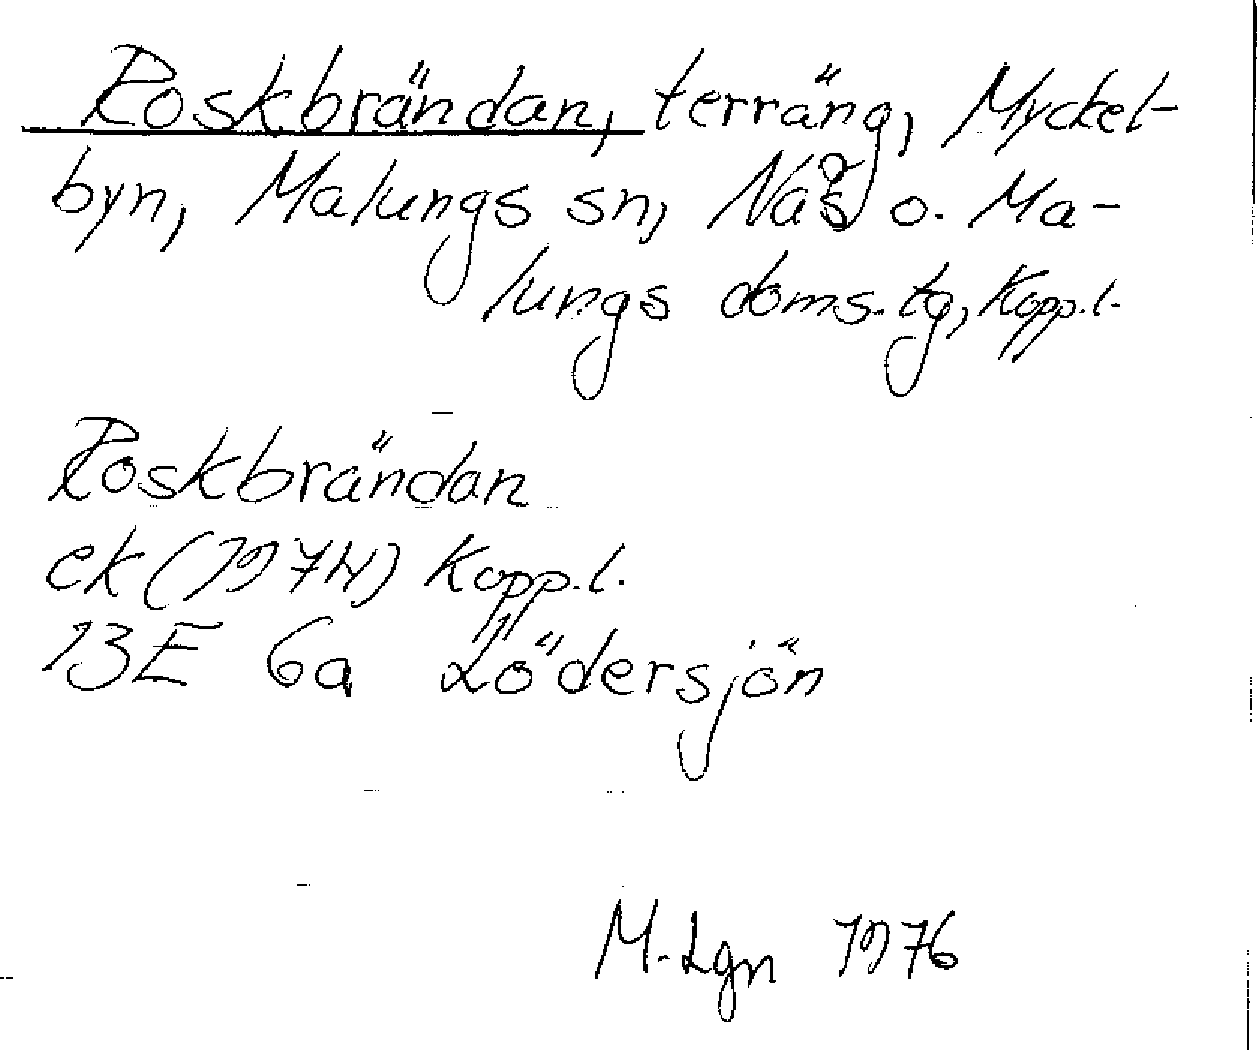 Roskbrändan, terräng, Myckel-
byn, Malungs sn, Nås o. Ma-
lungs doms.tg, Kopp.l.
Roskbrändan
ek (1974) Kopp.l.
13E 6a Lödersjön
M.Lgn 1976